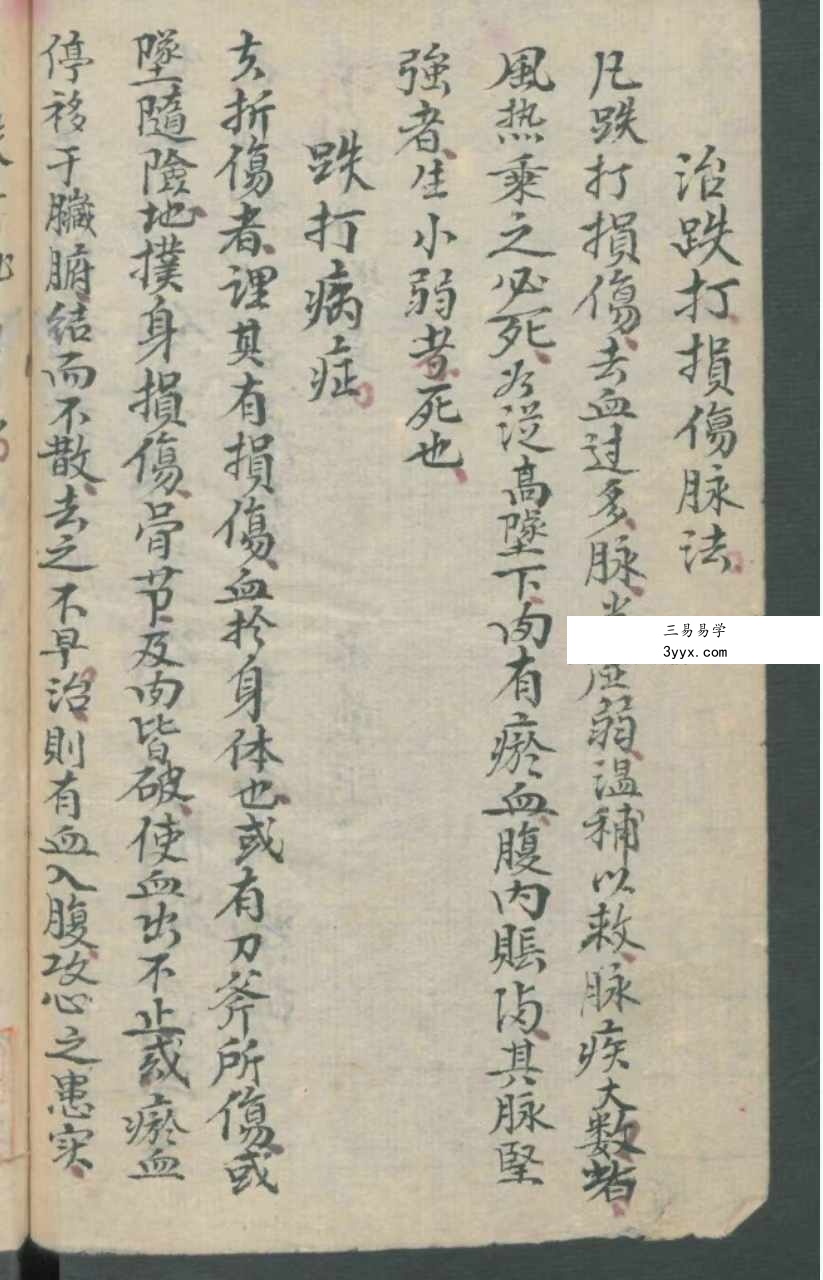 治跌打損傷脉法
凡跌打損傷去血过多脉虚弱温補以救脉疾大数者
風热乘之必死若從高墜下内有瘀血腹内賬满其脉堅
強者生小弱者死也
跌打病症
夫折傷者謂其有損傷血扵身体也或有刀斧所傷或
墜隨險地撲身損傷骨节及内皆破使血出不止或瘀血
停移于臟腑結而不散去之不早治則有血入腹攻心之患实
三易易学
3yyx.com